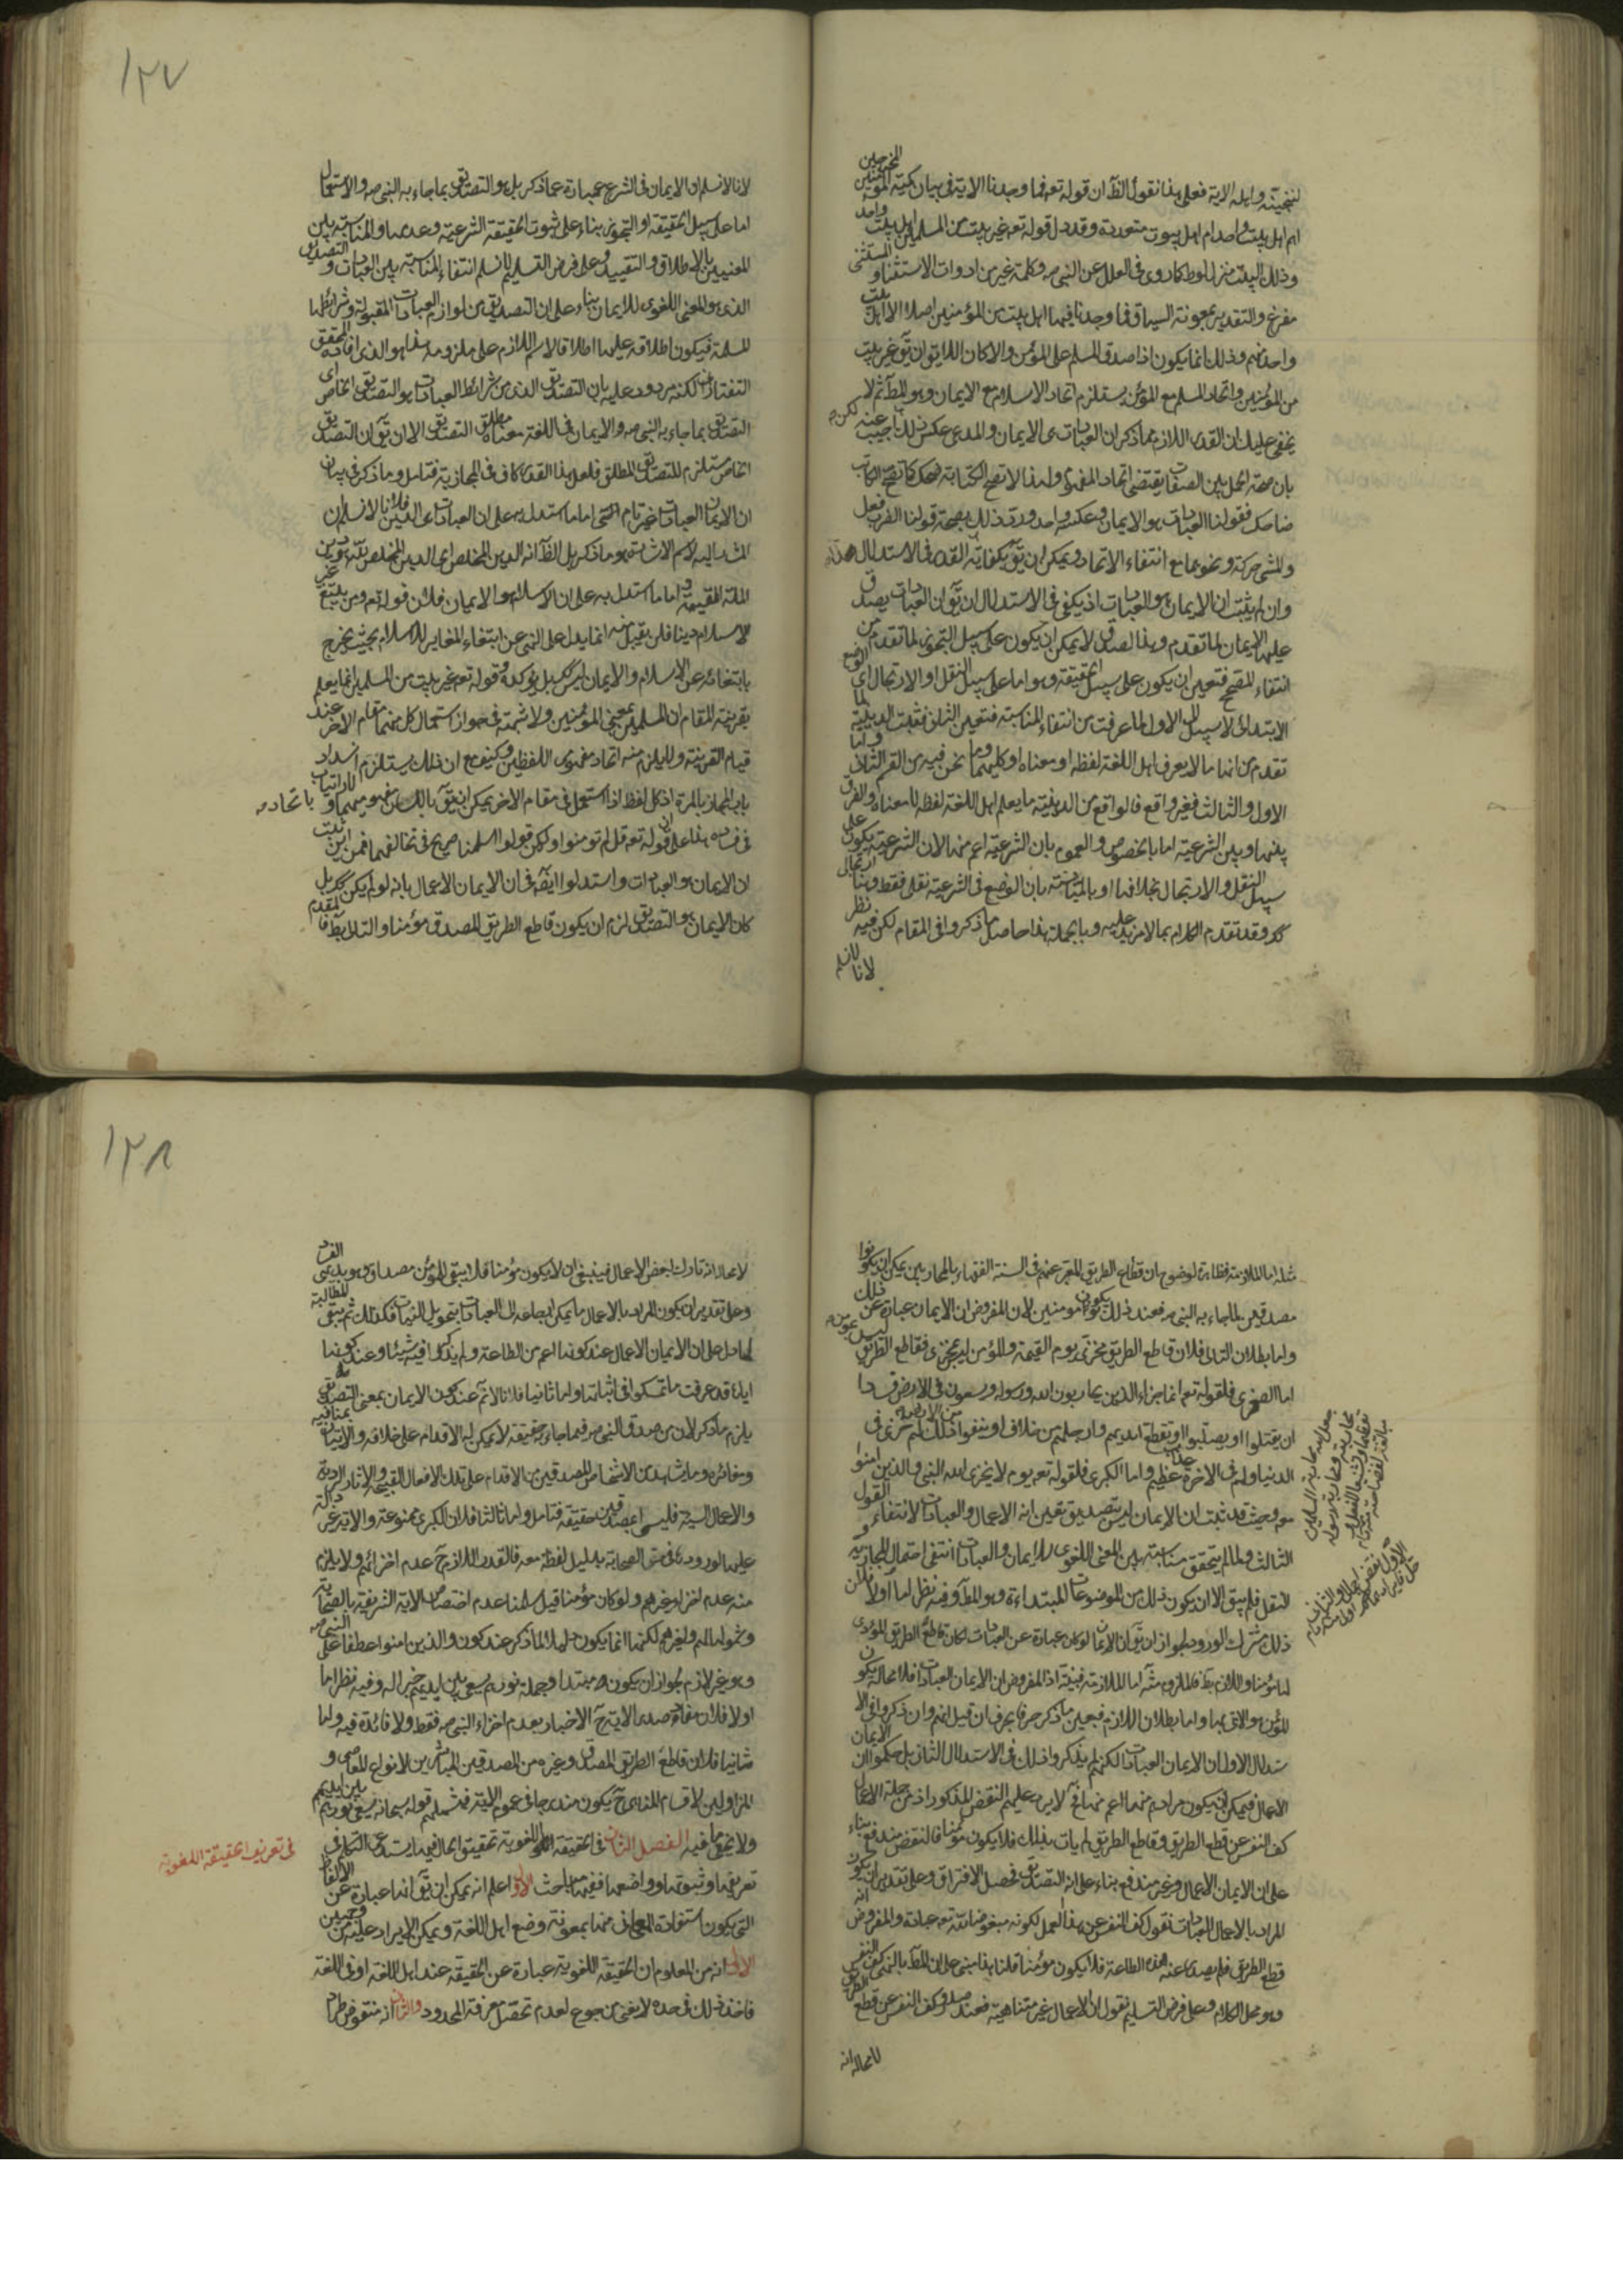 لننجينه واهله الاية فعلى هذا نقول الظ ان قوله تعه فما وجدنا الاية في بيان كمية المؤمنين المخرجين
اهم اهل بيت واحد ام اهل بيوت متعددة وقد دل قوله تعه غير بيت من المسلمين اهل بيت واحد
وذلك البيت منزل لوط كما روى في العلل عن النبي ص وكلمة غير من ادوات الاستثناء والمستثنى
مفرغ والتقدير بمعونة السياق فما وجدنا فيها اهل بيت من المؤمنين اصلا الا اهل بيت
واحد منهم وذلك انما يكون اذا صدق المسلم على المؤمن والا كان اللازم ان يق غير بيت
من المؤمنين واتحاد المسلم مع المؤمن يستلزم اتحاد الاسلام مع الايمان وهو المط ثم لا
يخفى عليك ان القدر اللازم مما ذكر ان العبادات هى الايمان والمدعى عكس ذلك اجيب عنه
بان صحة الحمل بين الصفات يقتضى اتحاد المفهوم ولهذا لا تصح الكتابة ضحك كما تصح الكاتب
ضاحك فقولنا العبادات هو الايمان وعكسه واحد ورد ذلك بصحة قولنا الضرب فعل
والمشى حركة ونحوهما مع انتفاء الاتحاد ويمكن ان يق بكفاية القدر في الاستدلال
وان لم يثبت ان الايمان هو العبادات اذ يكفى في الاستدلال ان يق ان العبادات يصدق
عليها الايمان لما تقدم وهذا الصدق لا يمكن ان يكون على سبيل التجوز لما تقدم من
انتفاء المصحح فتعين ان يكون على سبيل الحقيقة وهو اما على سبيل النقل او الارتجال اى الوضع
الابتدائى لا سبيل الى الاول لما عرفت من انتفاء المناسبة فتعين الثانى فثبت الدينية لما
تقدم من انها ما لا يعرف اهل اللغة لفظه او معناه او كليهما وما نحن فيه من القسم الثانى واما
الاول والثالث فغير واقع فالواقع من الدينية ما يعلم اهل اللغة لفظه لا معناه والفرق
بينها وبين الشرعية اما بالخصوص والعموم بان الشرعية اعم منها لان الشرعية يكون على
سبيل النقل والارتجال بخلافها او بالمباينة بان الوضع في الشرعية نقلى فقط وهنا ارتجالى
كك وقد تقدم الكلام بما لا مزيد عليه وبالجملة هذا حاصل ما ذكروا في المقام لكن فيه نظر
لانا لا نسلم
١٢٧
لانا لا نسلم ان الايمان في الشرع عبارة عما ذكر بل هو التصديق بما جاء به النبي ص والاستعمال
اما على سبيل الحقيقة او التجوز بناء على ثبوت الحقيقة الشرعية وعدمها والمناسبة بين
المعنيين بالاطلاق والتقييد وعلى فرض التسليم لا نسلم انتفاء المناسبة بين العبادات والتصديق
الذى هو المعنى اللغوى للايمان بناء على ان التصديق من لوازم العبادات المقبولة وشرائطها
المسلمة فيكون اطلاقه عليها اطلاقا لاسم اللازم على ملزومه هذا هو الذى افاده المحقق
التفتازانى لكنه مردود عليه بان التصديق الذى من شرائط العبادات هو التصديق الخاص اى
التصديق بما جاء به النبي ص والايمان في اللغة معناه مطلق التصديق الا ان يق ان التصديق
الخاص مستلزم للتصديق المطلق فلعل هذا القدر كاف في المجازية فتامل وما ذكر في بيان
ان الايمان العبادات غير تام الشى اما ما استدل به على ان العبادات هى الدين فلانا لا نسلم ان
المشار اليه لاسم الاشارة هو ما ذكر بل الظ انه الدين المخلص اى الدين المخلص لله هو دين
الملة القيمة واما ما استدل به على ان الاسلام هو الايمان فلان قوله تعه ومن يبتغ غير
الاسلام دينا فلن يقبل منه انما يدل على النهى عن ابتغاء المغاير للاسلام بحيث يخرج
بابتغائه عن الاسلام والايمان ليس كك بل يؤكده وقوله تعه غير بيت من المسلمين انما يعلم
بقرينة المقام ان المسلمين بمعنى المؤمنين ولا شبهة في جواز استعمال كل منهما مقام الاخر عند
قيام القرينة ولا يلزم منه اتحاد مفهومى اللفظين وكيف مع ان ذلك يستلزم انسداد
باب المجاز بالمرة اذ كل لفظ اذا استعمل في مقام الاخر يمكن ان يق باتحاد مفهوميهما ولا ارتياب
في فساد هذا على ان قوله تعه قل لم تومنوا ولكن قولوا اسلمنا صريح في تخالفهما فمن اين ثبت
ان الايمان هو العبادات واستدلوا ايضا في ان الايمان الاعمال بانه لو لم يكن كك بل
كان الايمان هو التصديق لزم ان يكون قاطع الطريق المصدق مؤمنا والتالى بط فالمقدم
مثله اما الملازمة فظاهرة لوضوح ان قطاع الطريق المعبر عنهم في السنة الفقهاء بالمحاربين يمكن ان يكونوا
مصدقين بما جاء به النبي ص فعند ذلك يكون مومنين لان المفروض ان الايمان عبارة عن ذلك
واما بطلان التالى فلان قاطع الطريق مخزى يوم القيمة والمؤمن ليس بمخزى فقاطع الطريق ليس بمومن
اما الصغرى فلقوله تعه انما جزاء الذين يحاربون الله ورسوله ويسعون في الارض فسادا
ان يقتلوا او يصلبوا او تقطع ايديهم وارجلهم من خلاف او ينفوا من الارض ذلك لهم خزى في
الدنيا ولهم في الاخرة عذاب عظيم واما الكبرى فلقوله تعه يوم لا يخزى الله النبي والذين امنوا
معه وحيث قد ثبت ان الايمان ليس بتصديق تعين انه الاعمال والعبادات لانتفاء القول
الثالث ولما لم يتحقق مناسبة بين المعنى اللغوى للايمان والعبادات انتفى احتمال المجازية و
النقل فلم يبق الا ان يكون ذلك من الموضوعات المبتداءة وهو المط وفيه نظر اما اولا فلان
ذلك مشترك الورود لجواز ان يق ان الايمان لو كان عبارة عن العبادات لكان قاطع الطريق المؤدى
لها مؤمنا واللازم بط فالملزوم مثله اما الملازمة فبينة اذ المفروض ان الايمان العبادات فلا محالة يكون
المؤمن هو الاتى بها واما بطلان اللازم فبعين ما ذكر حرفا بحرف فان قيل انهم وان ذكروا في الا
ستدلال الاول ان الايمان العبادات لكنهم لم يذكروا ذلك في الاستدلال الثانى بل حكموا ان الايمان
الاعمال فيمكن ان يكون مرادهم منها اعم منها فح لا يرد عليهم النقض المذكور اذ من جملة الاعمال
كف النفس عن قطع الطريق وقاطع الطريق لم يات بذلك فلا يكون مؤمنا فالنقض مندفع بناء
على ان الايمان الاعمال وغير مندفع بناء على انه التصديق فحصل الافتراق وعلى تقدير ان يكون
المراد بالاعمال العبادات نقول كف النفس عن هذا العمل لكونه مبغوضا لله تعه عبادة والمفروض انه
قطع الطريق فلم يصدر عنه هذه الطاعة فلا يكون مؤمنا قلنا هذا مبنى على ان المط بالنهى كف النفس
وهو محل الكلام وعلى فرض التسليم نقول ان الاعمال غير متناهية فعند صدور كف النفس عن قطع الطريق
لا محالة انه
١٢٨
لا محالة انه تارك لبعض الاعمال فينبغى ان لا يكون مؤمنا فلا يبقى للمؤمن مصداق وهو بديهى الفساد
وعلى تقدير ان يكون المراد بالاعمال ما يمكن ارجاعه الى العبادات بتحويل النيات فكذلك ثم يبقى المطالبة
بما دل على ان الايمان الاعمال عند كونها اعم من الطاعة ولم يذكر فيه شيئا وعند كونها
اياها قد عرفت ما تمسكوا في اثباتها واما ثانيا فلانا لا نم عند كون الايمان بمعنى التصديق
يلزم ما ذكر لان من صدق النبي ص فيما جاء به حقيقة لا يمكن له الاقدام على خلافه والاتيان بمنافيه
ومغائره وما يشاهد من الاشخاص المصدقين من الاقدام على تلك الافعال القبيحة والاثار الردية
والاعمال السيئة فليسوا بمصدقين حقيقة فتامل واما ثالثا فلان الكبرى ممنوعة والاية غير دالة
عليها لورودها في حق الصحابة بدليل لفظة معه فالقدر اللازم ح عدم اخزائهم ولا يلزم
منه عدم اخزاء غيرهم ولو كان مؤمنا قيل سلمنا عدم اختصاص الاية الشريفة بالصحابة
وشمولها لهم ولغيرهم لكنها انما يكون دليلا لما ذكر عند كون والذين امنوا عطفا على النبي ص
وهو غير لازم لجواز ان يكون مبتدا وجملة نورهم يسعى بين ايديهم خبرا له وفيه نظر اما
اولا فلان مفاد صدر الاية ح الاخبار بعدم اخزاء النبي ص فقط ولا فائدة فيه واما
ثانيا فلان قاطع الطريق المصدق وغيره من المصدقين المباشرين لانواع المعاصى و
المزاولين لاقسام المناهى ح يكون مندرجا في عموم الاية فيشملهم قوله سبحانه يسعى نورهم بين ايديهم
ولا يخفى ما فيه الفصل الثانى في الحقيقة اللغوية تحقيق الحال فيها يستدعى التكلم في
تعريفها وثبوتها وواضعها ففيها مباحث الاول اعلم انه يمكن ان يق انها عبارة عن الالفاظ
التى يكون استفادة المعانى منها بمعونة وضع اهل اللغة ويمكن الايراد عليه من وجهين
الاول انه من المعلوم ان الحقيقة اللغوية عبارة عن الحقيقة عند اهل اللغة او في اللغة
فاخذ ذلك في حده لا يغنى من جوع لعدم تحصيل معرفة المحدود والثانى انه منتقض طردا
في تعريف الحقيقة اللغوية